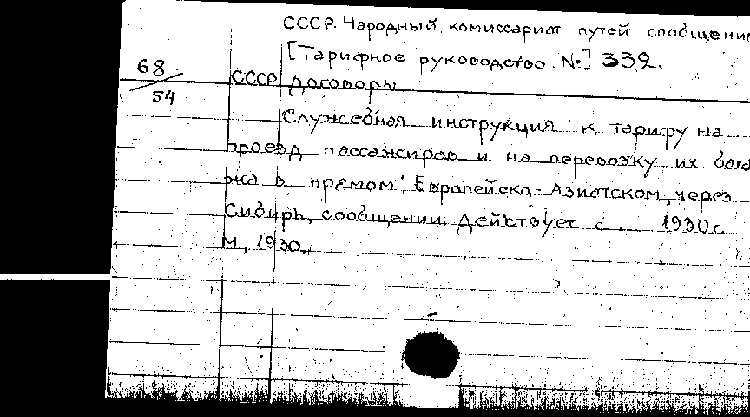 СССР. Народный комиссариат путей сообщения
[Тарифное руководство. №] 332.
68/54
СССР Договоры
Служебная инструкция к тарифу на
проезд пассажиров и на перевозку их бага
жа в прямом Европейско-Азиатском, через
Сибирь, сообщении. Действует с 1930 г.
М., 1930.